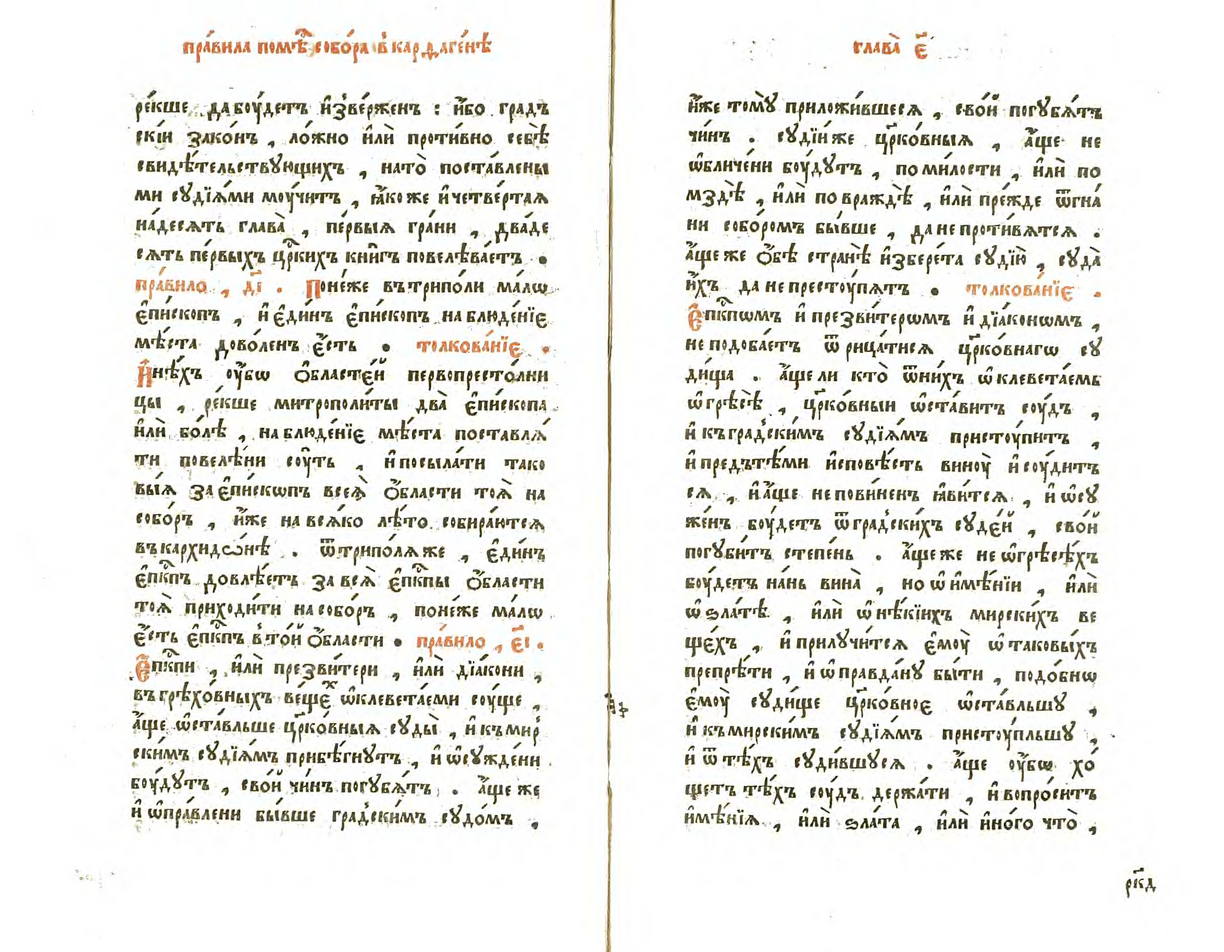 пра́вила помѣ́ с̾обо́ра в̾ кардаге́нѣ
ре́кше, да боу́детъ и҆зве́рженъ : и҆́бо гра́дъ
скїи зако́нъ, ло́жно и҆лѝ проти́вно себѣ̀
свидѣ́тельствующихъ, на то̀ поста́влены
ми судїѧ́ми моу́читъ, ꙗ҆́коже и҆ четве́ртаѧ
на́десѧть глава̀, пе́рвыѧ гра́ни, два́де
сѧть пе́рвыхъ цр҃кихъ кни́гъ повелѣва́етъ .
пра́вило, д҃і . Поне́же въ три́поли ма́лѡ
є҆пи́скопъ, и҆ є҆ди́нъ є҆пи́скопъ на блюде́нїе
мѣ́ста дово́ленъ є҆́сть . толкова́нїе .
И҆нѣ́хъ оу҆́бѡ ѻ҆бласте́й первопресто́лни
цы, ре́кше митрополи́ты два̀ є҆пи́скопа
и҆лѝ бо́лѣ, на блюде́нїе мѣ́ста поставлѧ́
ти повелѣ́ни соу́ть, и҆ посыла́ти тако
выѧ за є҆пи́скѡпъ всеѧ̀ ѻ҆́бласти тоѧ̀ на
собо́ръ, и҆́же на всѧ́ко лѣ́то собира́ютсѧ
въ кархидѡ́нѣ . ѿ три́полѧ же, є҆ди́нъ
є҆пк҃пъ довлѣ́етъ за всѧ̀ є҆пк҃пы ѻ҆́бласти
тоѧ̀ приходи́ти на собо́ръ, поне́же ма́лѡ
є҆́сть є҆пк҃пъ в̾ то́й ѻ҆́бласти . пра́вило, є҃і .
Є҆пк҃пи, и҆лѝ презви́тери, и҆лѝ дїа́кони,
въ грѣхо́вныхъ ве́щехъ ѡ҆клевета́еми соу́ще,
а҆́ще ѡ҆ста́вльше цр҃ко́вныѧ суды̀, и҆ къ мир
ски́мъ судїѧ́мъ прибѣ́гнутъ, и҆ ѡ҆сужде́ни
боу́дутъ, сво́й чи́нъ погубѧ́тъ . а҆́ще же
и҆ ѡ҆пра́влени бы́вше гра́дскимъ судо́мъ,
глава̀ є҃
и҆́же томꙋ̀ приложи́вшесѧ, сво́й погубѧ́тъ
чи́нъ . судїи́ же цр҃ко́вныѧ, а҆́ще не
ѡ҆бличе́ни боу́дутъ, по ми́лости, и҆лѝ по
мздѣ̀, и҆лѝ по враждѣ̀, и҆лѝ пре́жде ѿгна́
ни собо́ромъ бы́вше, да не проти́вѧтсѧ .
а҆́ще же ѻ҆́бѣ странѣ̀ и҆збере́та судїи̑, суда̀
и҆́хъ да не престоу́пѧтъ . толкова́нїе .
Є҆пк҃пѡмъ и҆ презви́терѡмъ и҆ дїа́конѡмъ,
не подоба́етъ ѿрица́тисѧ цр҃ко́внагѡ су
ди́ща . а҆́ще ли кто̀ ѿ ни́хъ ѡ҆клевета́емь
ѡ҆ грѣсѣ̀, цр҃ко́вныи ѡ҆ста́витъ соу́дъ,
и҆ къ гра́дскимъ судїѧ́мъ пристоу́питъ,
и҆ предъ тѣ́ми и҆сповѣ́сть виноу̀ и҆ соу́дитъ
сѧ, и҆ а҆́ще непови́ненъ ꙗ҆ви́тсѧ, и҆ ѡ҆су
же́нъ боу́детъ ѿ гра́дскихъ суде́й, сво́й
погуби́тъ степе́нь . а҆́ще же не ѡ҆ грѣсѣ́хъ
боу́детъ на́нь вина̀, но ѡ҆ и҆мѣ́нїи, и҆лѝ
ѡ҆ ѕла́тѣ, и҆лѝ ѡ҆ нѣ́кїихъ мирски́хъ ве
щѐхъ, и҆ прилучи́тсѧ є҆моу̀ ѡ҆ таковы́хъ
препрѣ́ти, и҆ ѡ҆правда́ну бы́ти, подо́бнѡ
є҆моу̀ суди́ще цр҃ко́вное ѡ҆ста́вльшу,
и҆ къ мирски́мъ судїѧ́мъ пристоу́пльшу,
и҆ ѿ тѣ́хъ суди́вшусѧ . а҆́ще оу҆́бѡ хо́
щетъ тѣ́хъ соу́дъ держа́ти, и҆ вопро́ситъ
и҆мѣ́нїѧ, и҆лѝ ѕла́та, и҆лѝ и҆но́го что̀,
рк҃д